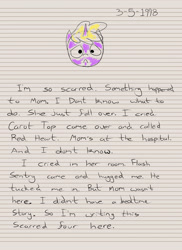 3-5-1998
I'm so scarred. Something happened
to Mom. I Dont know what to
do. She just fell over. I cried.
Carot Top came over and called
Red Heart. Mom's at the hospital.
And I dont know.
I cried in her room Flash
Sentry came and hugged me. He
tucked me in. But mom wasnt
here. I didnt have a bedtime
Story. So I'm writing this
Scarred four here.